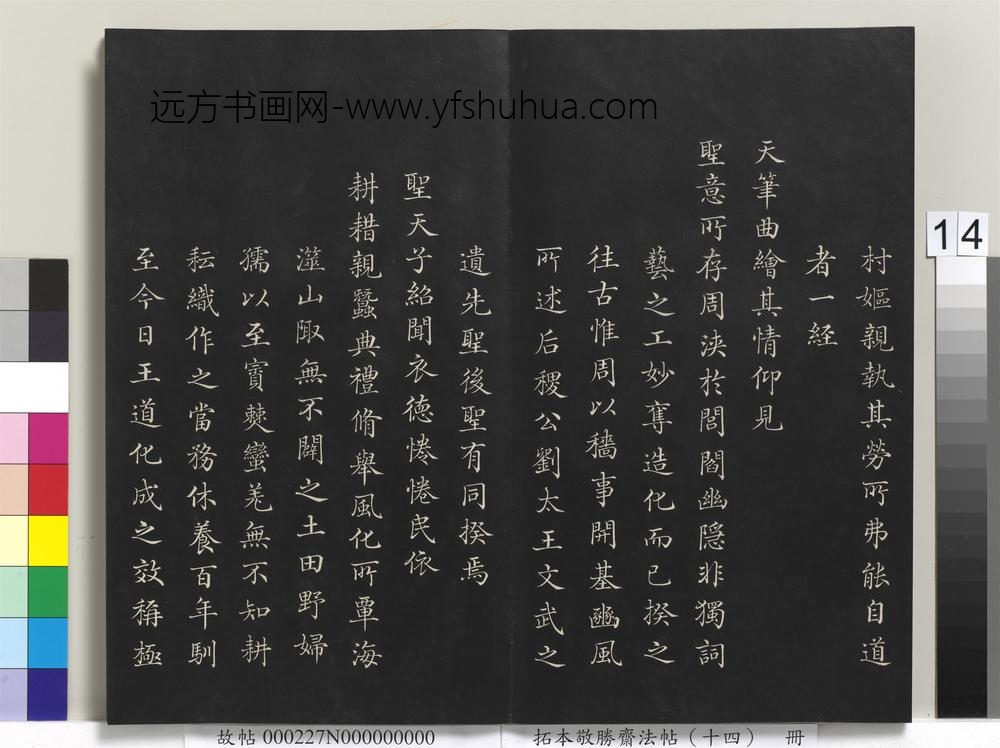 远方书画网-www.yfshuhua.com
村嫗親執其勞所弗能自道
者一經
天筆曲繪其情仰見
聖意所存周浹於閭閻幽隱非獨詞
藝之工妙奪造化而已揆之
往古惟周以穡事開基豳風
所述后稷公劉太王文武之
遺先聖後聖有同揆焉
聖天子紹聞衣德惓惓民依
耕耤親蠶典禮脩舉風化所覃海
澨山陬無不闢之土田野婦
孺以至賨僰蠻羌無不知耕
耘織作之當務休養百年馴
至今日王道化成之效稱極
14
故帖 000227N000000000
拓本敬勝齋法帖（十四） 冊